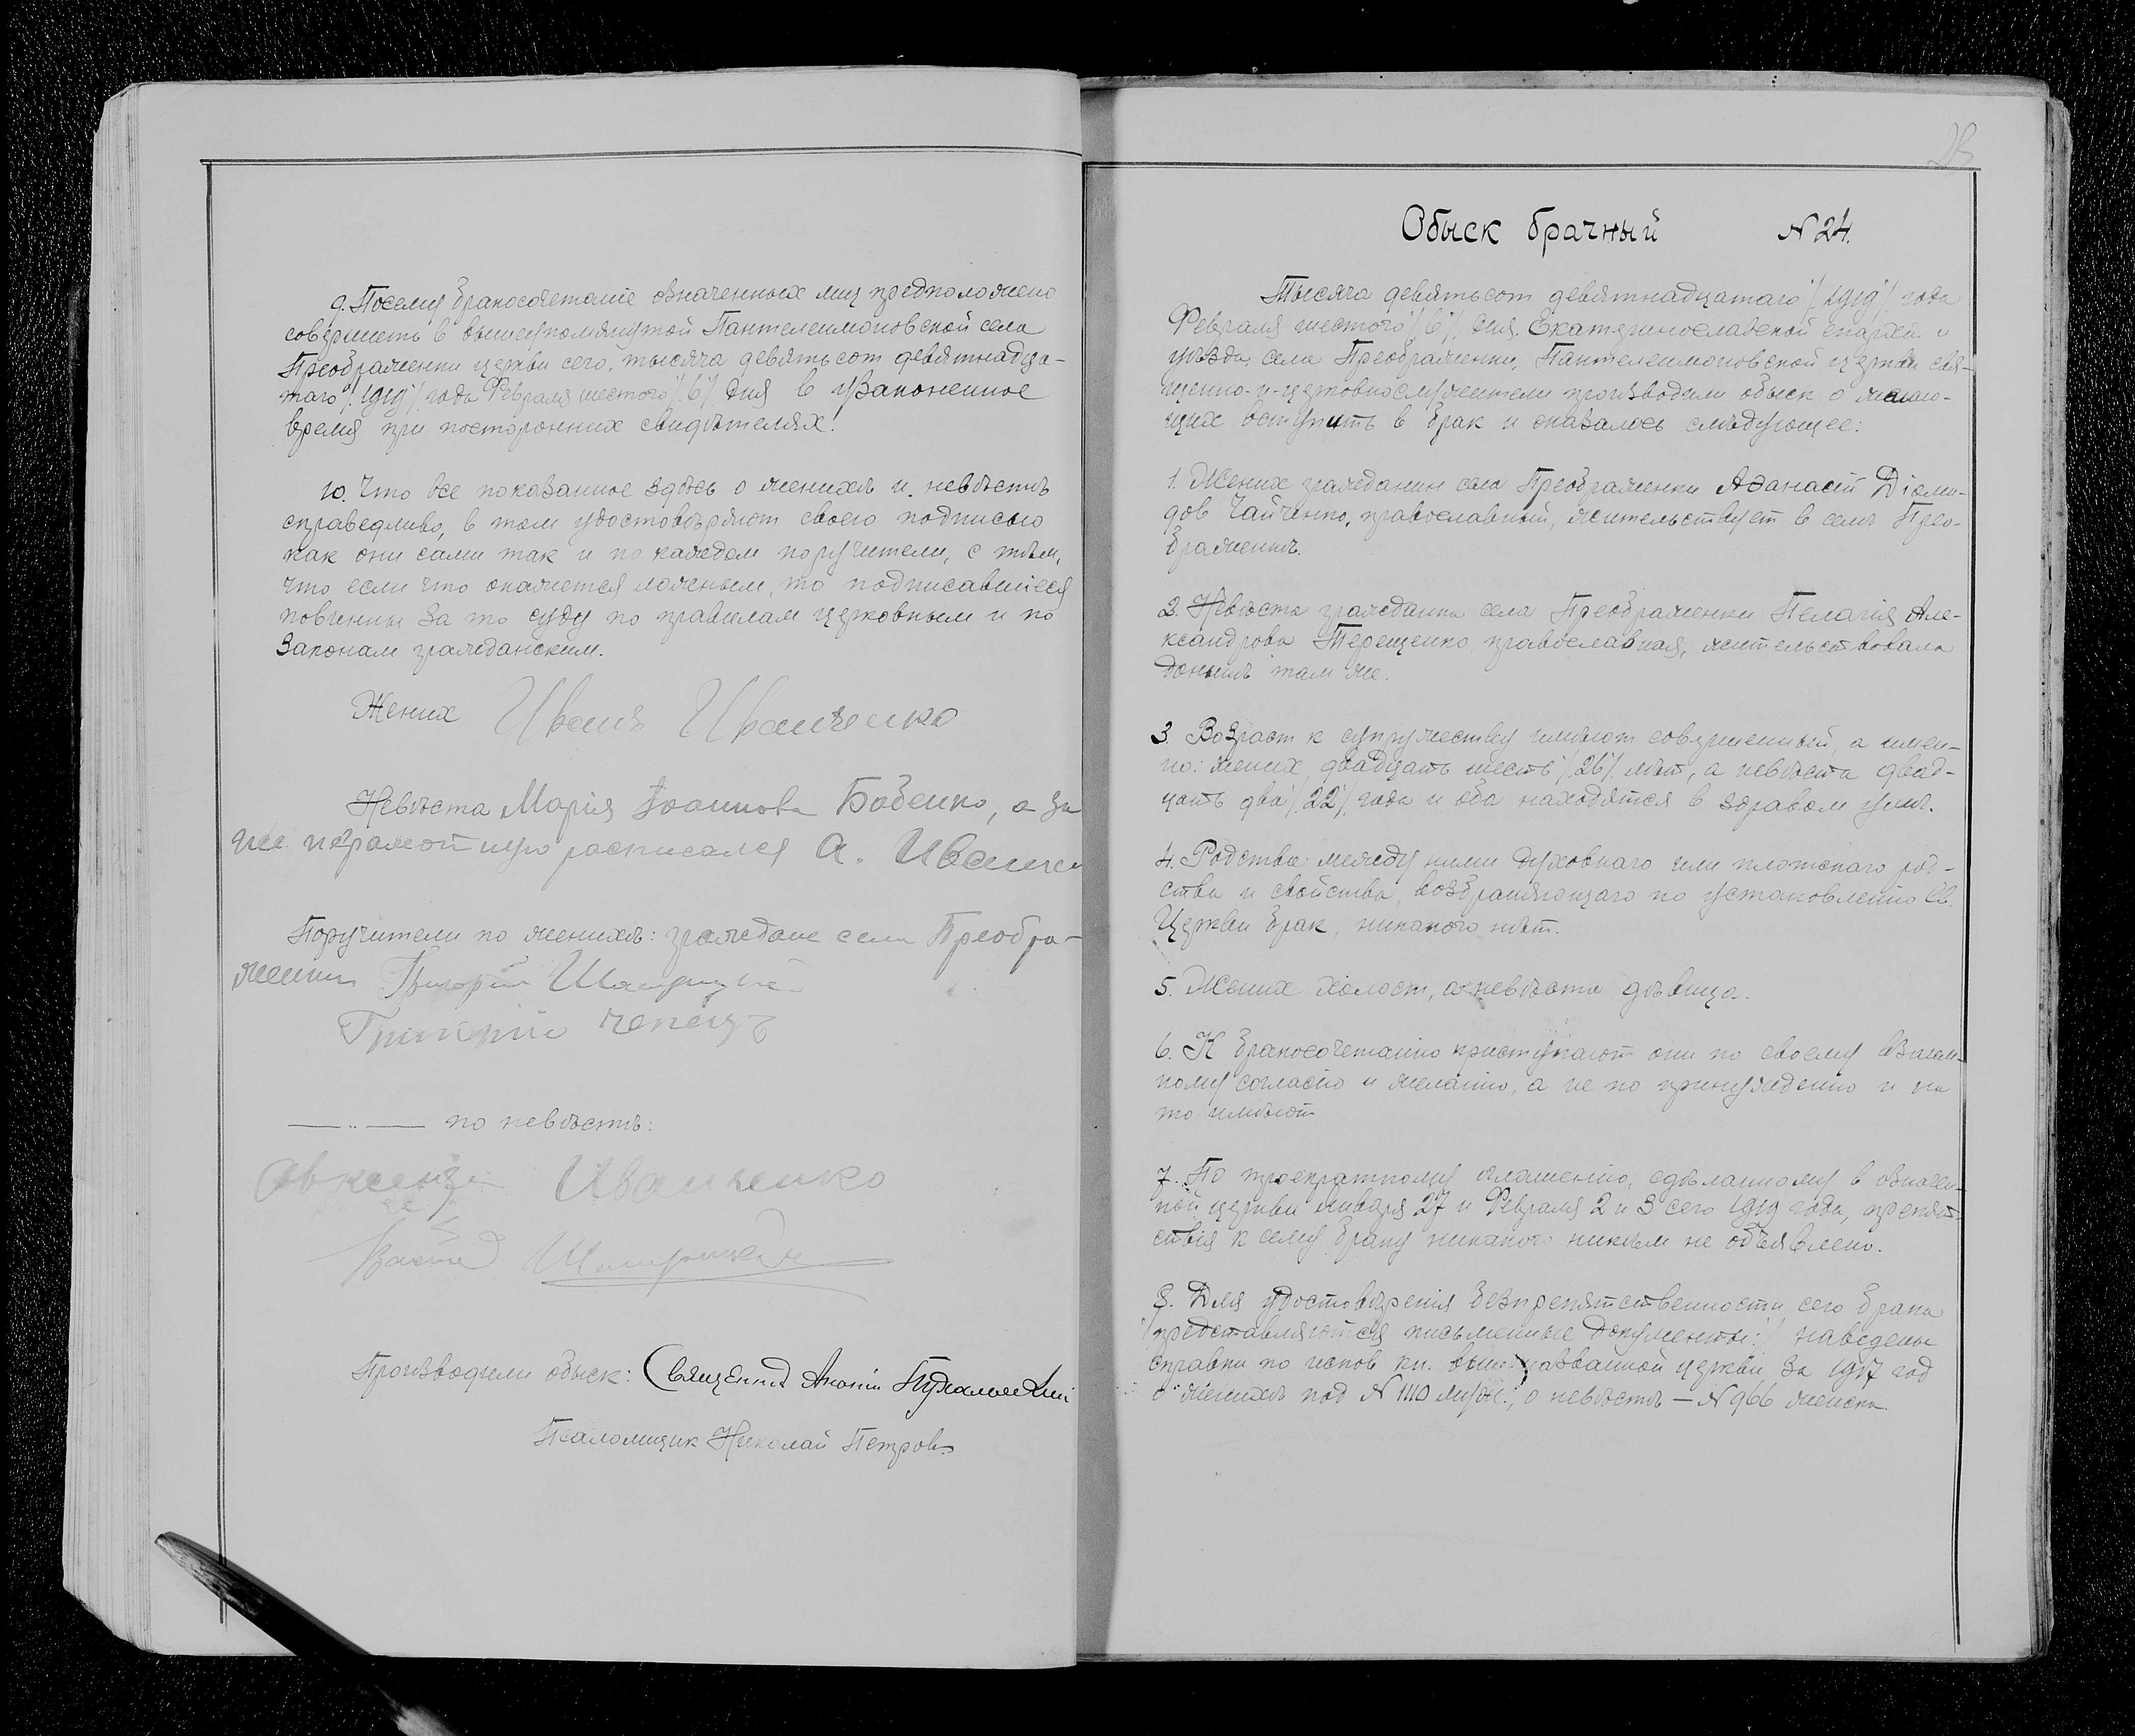 9. Посему бракосочетание означенных лиц предположено
совершить в вышеупомянутой Пантелеимоновской села
Преображенки церкви сего, тысяча девятьсот девятнадца-
таго /1919/ года Февраля шестого /6/ дня в узаконенное
время при посторонних свидѣтелях!
10. Что все показанное здѣсь о женихѣ и невѣстѣ
справедливо, в том удостовѣряют своею подписью
как они сами так и по каждом поручители, с тѣм,
что если что окажется ложным, то подписавшіеся
повинны за то суду по правилам церковным и по
законам гражданским.
Жених Иванъ Иванченко
Невѣста Марія Іоаннова Бабенко, а за
нее неграмотную росписался А. Иванчен
Поручители по женихѣ: граждане села Преобра-
женки Григорій
Григорій
—„— по невѣстѣ:
Авксентій Иванченко
Производили обыск: Священник
Псаломщик Николай Петров
23
Обыск брачный N 24.
Тысяча девятьсот девятнадцатаго /1919/ года
Февраля шестого /6/ дня. Екатеринославской епархіи и
уѣзда, села Преображенки, Пантелеимоновской церкви свя-
щенно-и-церковнослужители производили обыск о желаю-
щих вступить в брак и оказалось слѣдующее:
1. Жених гражданин села Преображенки Афанасій Діоми-
дов Чайченко, православный, жительствует в селѣ Прео-
браженкѣ.
2. Невѣста гражданка села Преображенки Пелагія Але-
ксандрова Терещенко, православная, жительствовала
донынѣ там же.
3. Возраст к супружеству имѣют совершенный, а имен-
но: жених двадцать шесть /26/ лѣт, а невѣста двад-
цать два /22/ года и оба находятся в здравом умѣ.
4. Родства между ними духовнаго или плотскаго род-
ства и свойства, возбраняющаго по установленію Св.
Церкви брак, никакого нѣт.
5. Жених холост, а невѣста дѣвица.
6. К бракосочетанію приступают они по своему взаим-
ному согласію и желанію, а не по принужденію и на
то имѣют
7. По троекратному оглашенію, сдѣланному в означен-
ной церкви января 27 и Февраля 2 и 3 сего 1919 года, препят-
ствія к сему браку никакого никѣм не объявлено.
8. Для удостовѣренія безпрепятственности сего брака
представляются письменные документы:/ наведены
справки по испов. кн. вышеназванной церкви за 1917 год
о женихѣ под N 1110 муж., о невѣстѣ — N 966 женска.